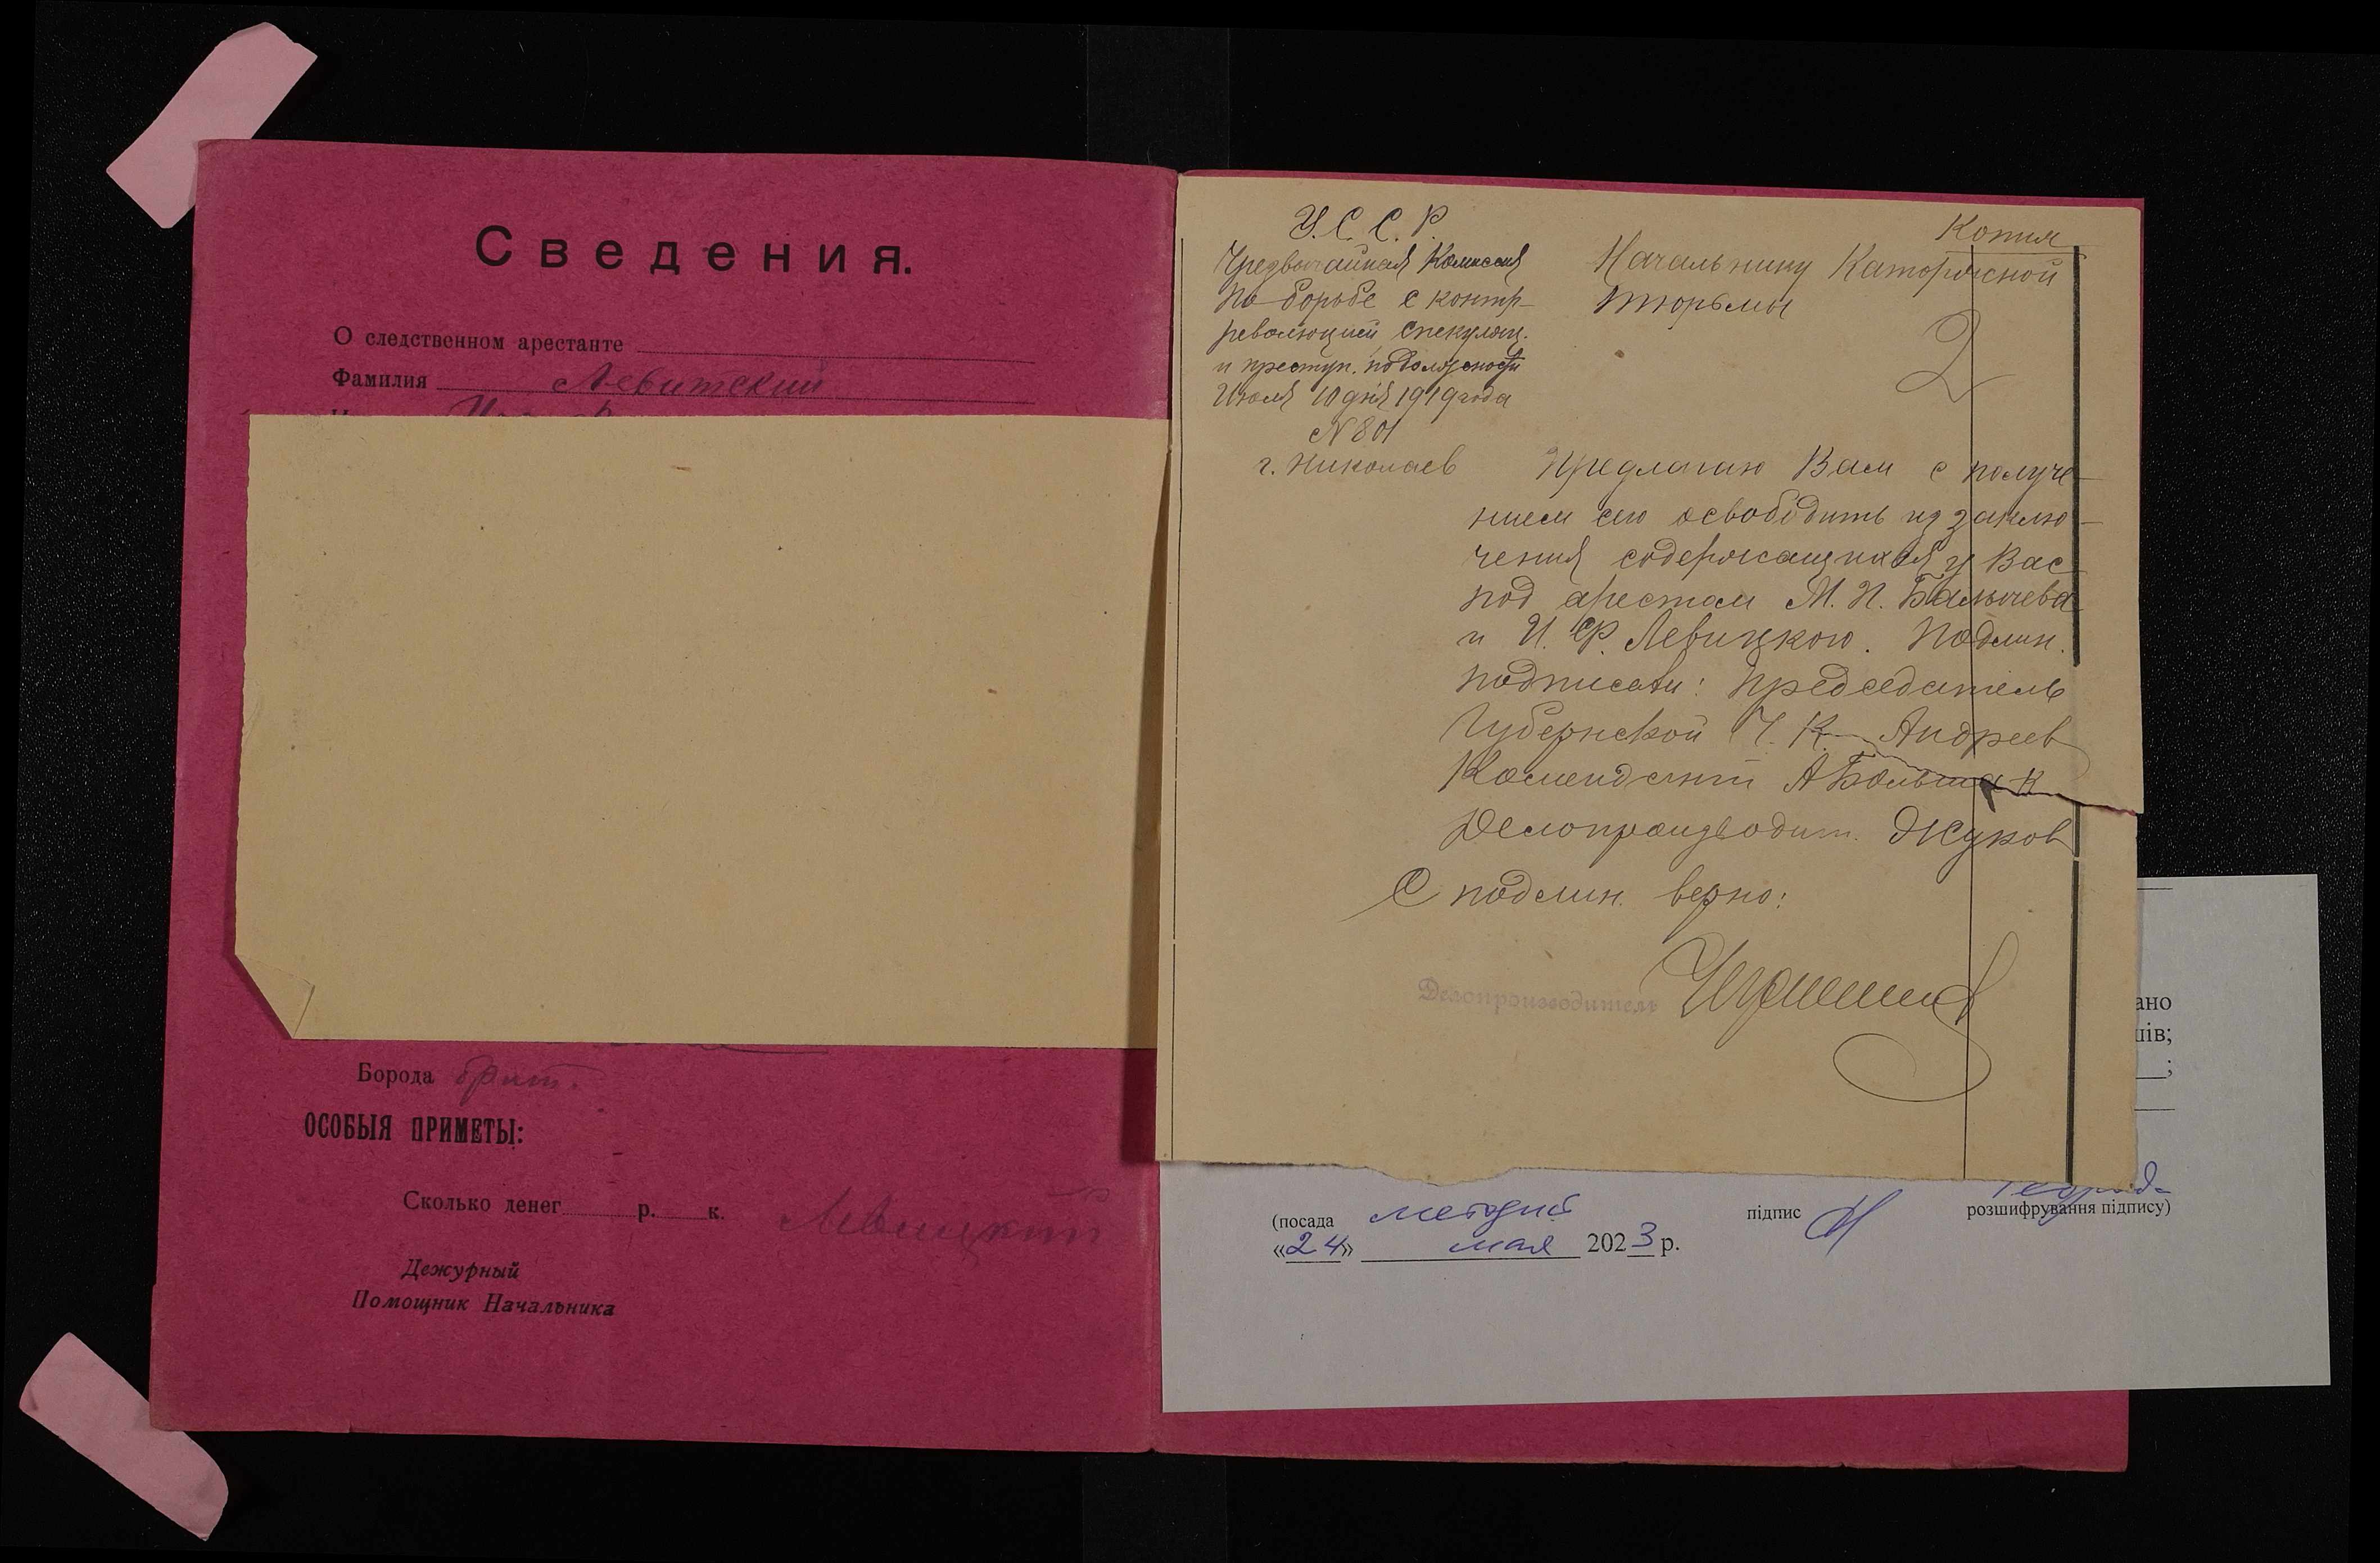 Сведения.
О следственном арестанте
Фамилия Левитский
Борода брит.
ОСОБЫЯ ПРИМЕТЫ:
Сколько денег р. к. Левицкий
Дежурный
Помощник Начальника
Копия
У.С.С.Р.
Чрезвычайная Комиссия
по борьбе с контр-
революцией, спекуляц.
и преступ. по должности
Июля 10 дня 1919 года
№ 801
г. Николаев
Начальнику Каторжной
тюрьмы
2
Предлагаю Вам с получе-
нием сего освободить из заклю-
чения содержащихся у Вас
под арестом М. И.
и И. Ф. Левицкого. Подлин.
подписали: Председатель
Губернской Ч. К. Андреев
Комендант А Большак
Делопроизводит. Жуков
С подлин. верно:
Делопроизводитель
ано
ів;
;
(посада методист підпис розшифрування підпису)
«24» мая 2023 р.